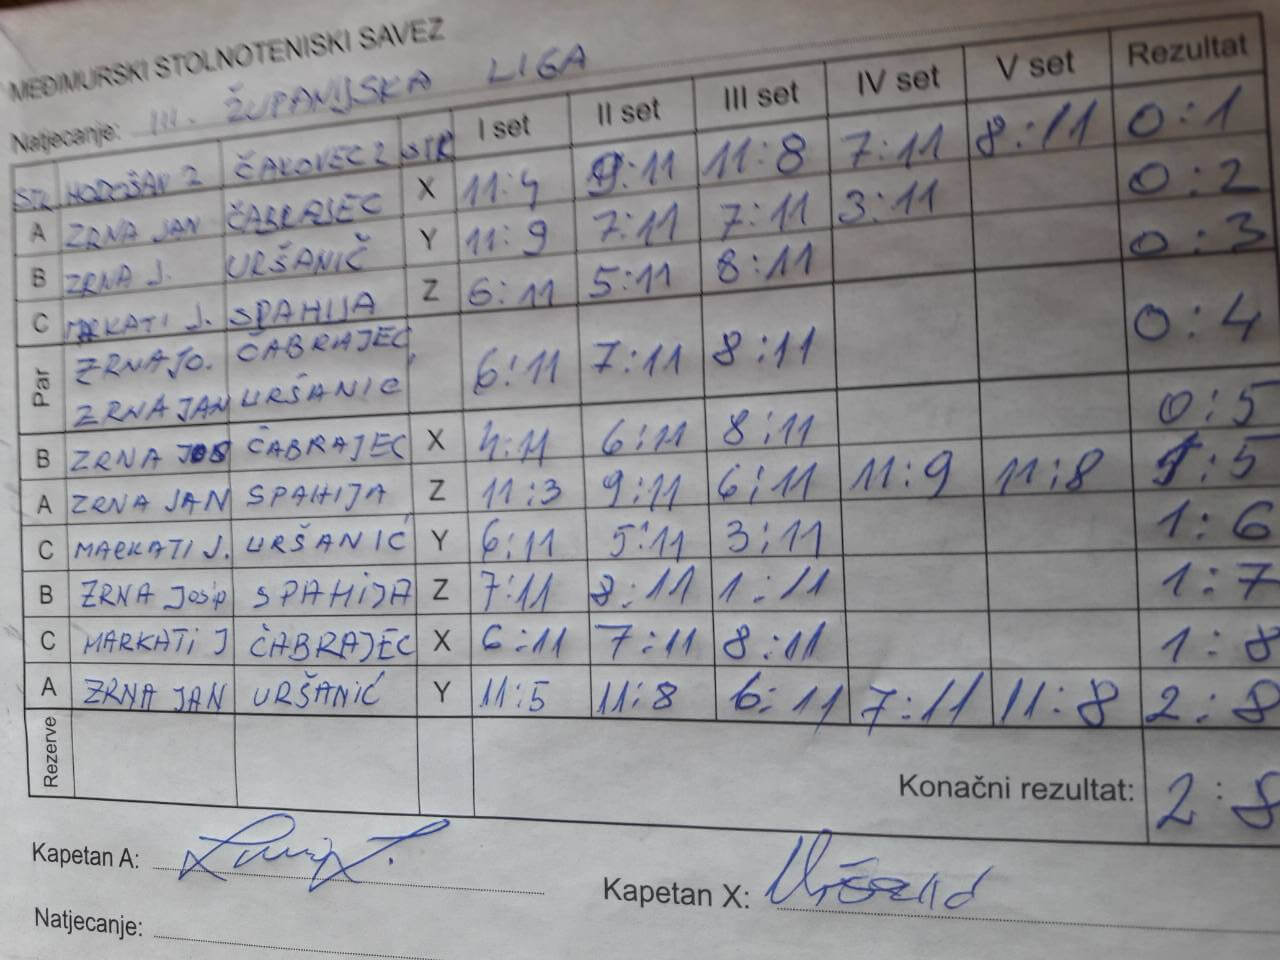 MEĐIMURSKI STOLNOTENISKI SAVEZ
Natjecanje: III. ŽUPANIJSKA LIGA
STR HODOŠAN 2 ČAKOVEC 2 STR I set II set III set IV set V set Rezultat
A ZRNA JAN ČABRAJEC X 11:4 9:11 11:8 7:11 8:11 0:1
B ZRNA J. URŠANIČ Y 11:9 7:11 7:11 3:11 0:2
C MARKATI J. SPAHIJA Z 6:11 5:11 8:11 0:3
Par ZRNA JO. ČABRAJEC, 6:11 7:11 8:11 0:4
ZRNA JAN URŠANIĆ
B ZRNA JOS ČABRAJEC X 4:11 6:11 8:11 0:5
A ZRNA JAN SPAHIJA Z 11:3 9:11 6:11 11:9 11:8 1:5
C MARKATI J. URŠANIĆ Y 6:11 5:11 3:11 1:6
B ZRNA Josip SPAHIJA Z 7:11 8:11 1:11 1:7
C MARKATI J ČABRAJEC X 6:11 7:11 8:11 1:8
A ZRNA JAN URŠANIĆ Y 11:5 11:8 6:11 7:11 11:8 2:8
Rezerve
Konačni rezultat: 2:8
Kapetan A:
Kapetan X:
Natjecanje: